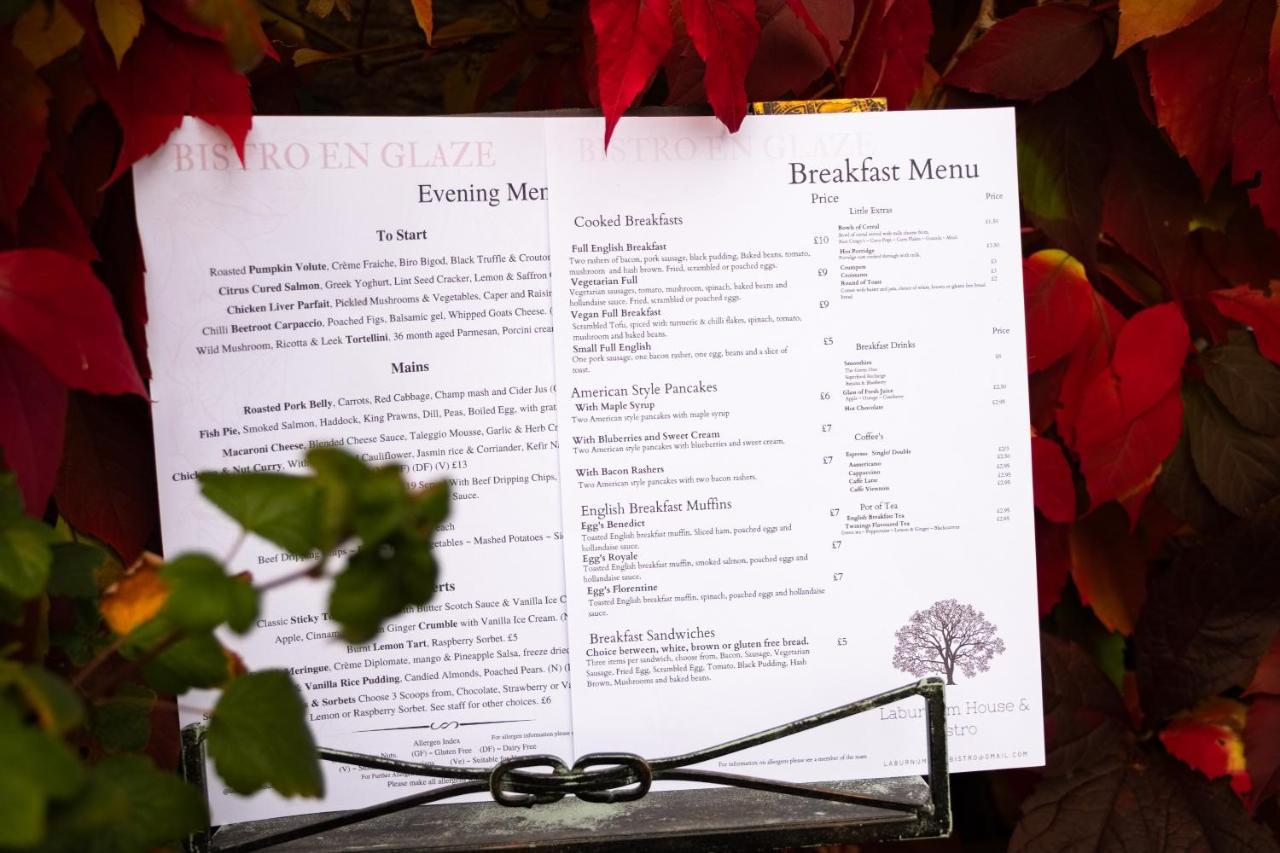 BISTRO EN GLAZE
Evening Men
To Start
Roasted Pumpkin Volute, Crème Fraiche, Biro Bigod, Black Truffle & Crouton
Citrus Cured Salmon, Greek Yoghurt, Lint Seed Cracker, Lemon & Saffron
Chicken Liver Parfait, Pickled Mushrooms & Vegetables, Caper and Raisin
Chilli Beetroot Carpaccio, Poached Figs, Balsamic gel, Whipped Goats Cheese. (
Wild Mushroom, Ricotta & Leek Tortellini, 36 month aged Parmesan, Porcini crea
Mains
Roasted Pork Belly, Carrots, Red Cabbage, Champ mash and Cider Jus (
Fish Pie, Smoked Salmon, Haddock, King Prawns, Dill, Peas, Boiled Egg, with grat
Macaroni Cheese, Blended Cheese Sauce, Taleggio Mousse, Garlic & Herb Cr
& Nut Curry, With Cauliflower, Jasmin rice & Corriander, Kefir
(DF) (V) £13
With Beef Dripping Chips,
Sauce.
Beef Dripping Chips ~ Vegetables ~ Mashed Potatoes ~
Classic Sticky with Butter Scotch Sauce & Vanilla Ice C
Apple, Cinnamon Ginger Crumble with Vanilla Ice Cream. (
Burnt Lemon Tart, Raspberry Sorbet. £5
Meringue, Crème Diplomate, mango & Pineapple Salsa, freeze dried
& Vanilla Rice Pudding, Candied Almonds, Poached Pears. (N) (
& Sorbets Choose 3 Scoops from, Chocolate, Strawberry or Va
Lemon or Raspberry Sorbet. See staff for other choices. £6
Allergen Index
For allergen information please
Nuts. (GF) ~ Gluten Free (DF) ~ Dairy Free
(V) ~ (Ve) ~ Suitable for
For Further
Please make all
BISTRO EN GLAZE
Breakfast Menu
Price
Cooked Breakfasts
Full English Breakfast £10
Two rashers of bacon, pork sausage, black pudding, Baked beans, tomato,
mushroom and hash brown. Fried, scrambled or poached eggs.
Vegetarian Full £9
Vegetarian sausages, tomato, mushroom, spinach, baked beans and
hollandaise sauce. Fried, scrambled or poached eggs.
Vegan Full Breakfast £9
Scrambled Tofu, spiced with turmeric & chilli flakes, spinach, tomato,
mushroom and baked beans.
Small Full English £5
One pork sausage, one bacon rasher, one egg, beans and a slice of
toast.
American Style Pancakes
With Maple Syrup £6
Two American style pancakes with maple syrup
With Bluberries and Sweet Cream £7
Two American style pancakes with blueberries and sweet cream.
With Bacon Rashers £7
Two American style pancakes with two bacon rashers.
English Breakfast Muffins
Egg's Benedict £7
Toasted English breakfast muffin, Sliced ham, poached eggs and
hollandaise sauce.
Egg's Royale £7
Toasted English breakfast muffin, smoked salmon, poached eggs and
hollandaise sauce.
Egg's Florentine £7
Toasted English breakfast muffin, spinach, poached eggs and hollandaise
sauce.
Breakfast Sandwiches
Choice between, white, brown or gluten free bread. £5
Three items per sandwich, choose from, Bacon, Sausage, Vegetarian
Sausage, Fried Egg, Scrambled Egg, Tomato, Black Pudding, Hash
Brown, Mushrooms and baked beans.
Price
Little Extras
Bowls of Cereal £1.50
Bowl of cereal served with milk choose from,
Rice Crispy's ~ Coco Pops ~ Corn Flakes ~ Granola ~ Musli
Hot Porridge £3.50
Porridge oats cooked through with milk.
Crumpets £3
Croissants £3
Round of Toast £2
Comes with butter and jam, choice of white, brown or gluten free bread
bread.
Price
Breakfast Drinks
Smoothies
The Green One
Superfood Recharge
Banana & Blueberry
Glass of Fresh Juice £2.50
Apple ~ Orange ~ Cranberry
Hot Chocolate £2.95
Coffee's
Espresso Single/ Double
£2.50
Aamericano £2.95
Cappuccino £2.95
Caffe Latte £2.95
Caffe Viennois £2.95
Pot of Tea
English Breakfast Tea £2.95
Twinings Flavoured Tea £2.95
Green tea ~ Peppermint ~ Lemon & Ginger ~ Blackcurrant
Laburnum House &
Bistro
For information on allergens please see a member of the team
BISTRO@GMAIL.COM